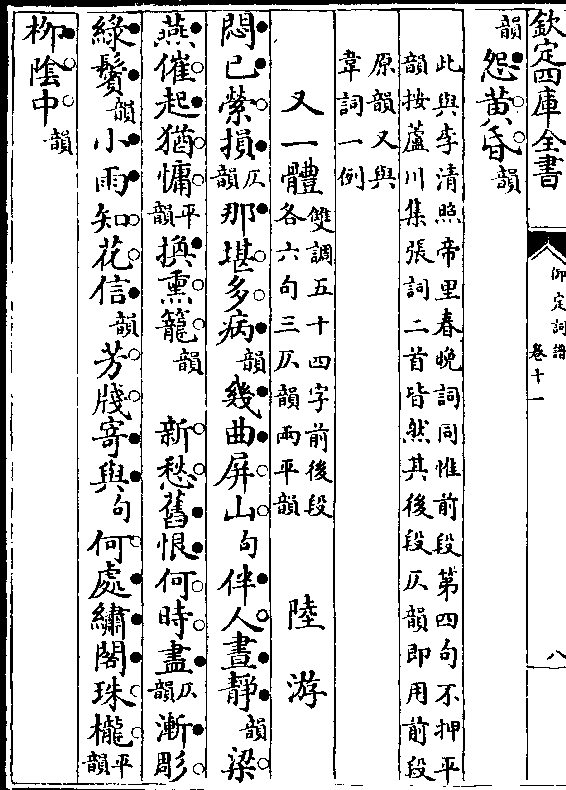 欽定四庫全書
御定詞譜
卷十一
八
韻怨黃昏韻
此與李清照帝里春晚詞同惟前段第四句不押平
韻按蘆川集張詞二首皆然其後段仄韻即用前段
原韻又與
韋詞一例
又一體雙調五十四字前後段
各六句三仄韻兩平韻
陸游
悶已縈損仄韻那堪多病韻幾曲屏山句伴人晝靜韻梁
燕催起猶慵平韻換熏籠韻 新愁舊恨何時盡仄韻漸彫
綠鬢韻小雨知花信韻芳牋寄與句何處繡閣珠櫳平韻
柳陰中韻